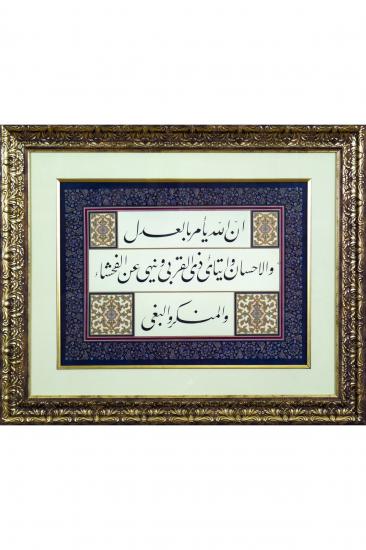 ان الله یأمر بالعدل
والاحسان وایتائ ذی القربی وینهی عن الفحشاء
والمنکر والبغی